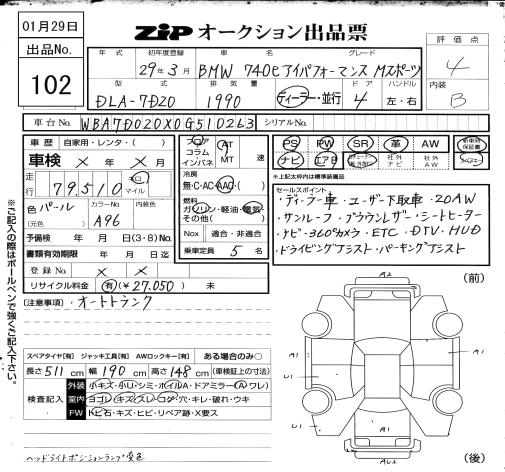 01月29日
出品No.
102
ZiP オークション出品票
評価点
4
内装
B
年式 初年度登録 車名 グレード
29年3月 BMW 740e アイパフォーマンス Mスポーツ
型式 排気量 ドア ハンドル
DLA-7D20 1990 ディーラー・並行 4 左・右
車台No. WBA7D020X0G510263 シリアルNo.
車歴 自家用・レンタ・( )
車検 × 年 × 月
走行 79,510 キロ マイル
色 パール カラーNo. A96 内装色
(元色)
予備検 年 月 日(3・8)No.
書類有効期限 年 月 日迄
登録No. × ×
リサイクル料金 有(¥27,050) 未
フロア コラム インパネ AT MT 速
冷房
無・C・AC・AAC( )
燃料
ガソリン・軽油・電気
その他( )
Nox 適合・非適合
乗車定員 5 名
PS PW SR 革 AW 新車時保証書
ナビ エアB 社外ナビ 社外AW
※上記太枠内は標準装備品
セールスポイント
・ディーラー車・ユーザー下取車・20AW
・サンルーフ・ブラウンレザー・シートヒーター
・ナビ・360°カメラ・ETC・DTV・HUD
・ドライビングアシスト・パーキングアシスト
[注意事項]・オートトランク
※ご記入の際はボールペンで強くご記入下さい。
スペアタイヤ[有] ジャッキ工具[有] AWロックキー[有] ある場合のみ○
長さ511cm 幅190cm 高さ148cm (車検証上の寸法)
検査記入
外装 小キズ・小U・シミ・ホイルA・ドアミラー(A・ワレ)
室内 ヨゴレ・キズ・スレ・コゲ・穴・キレ・破れ・ウキ
FW トビ石・キズ・ヒビ・リペア跡・X要ス
ヘッドライトポジションランプ変色
(前)
A2
A1
A1
U1
U1
A1
AU2
(後)